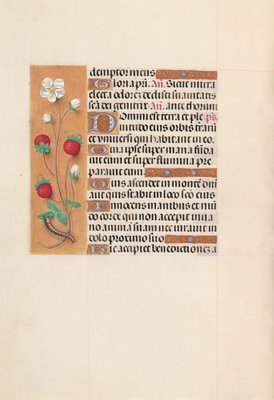 demptor meus
Gloria p̄ri. Añ. Sicut mirra
electa odorem dedisti suauitatis
sancta dei genitrix. Añ. ante thorum
Domini est terra et ple ps̄
nitudo eius orbis terrarū
et vniuersi qui habitant in eo.
Quia ipse super maria funda
uit eum et super flumina pre
parauit eum
Quis ascendet in montem dn̄i
aut quis stabit in loco sancto eius
Innocens manibus et mū
do corde qui non accepit in va
no animam suam nec iurauit in
dolo proximo suo
Hic accipiet benedictionem